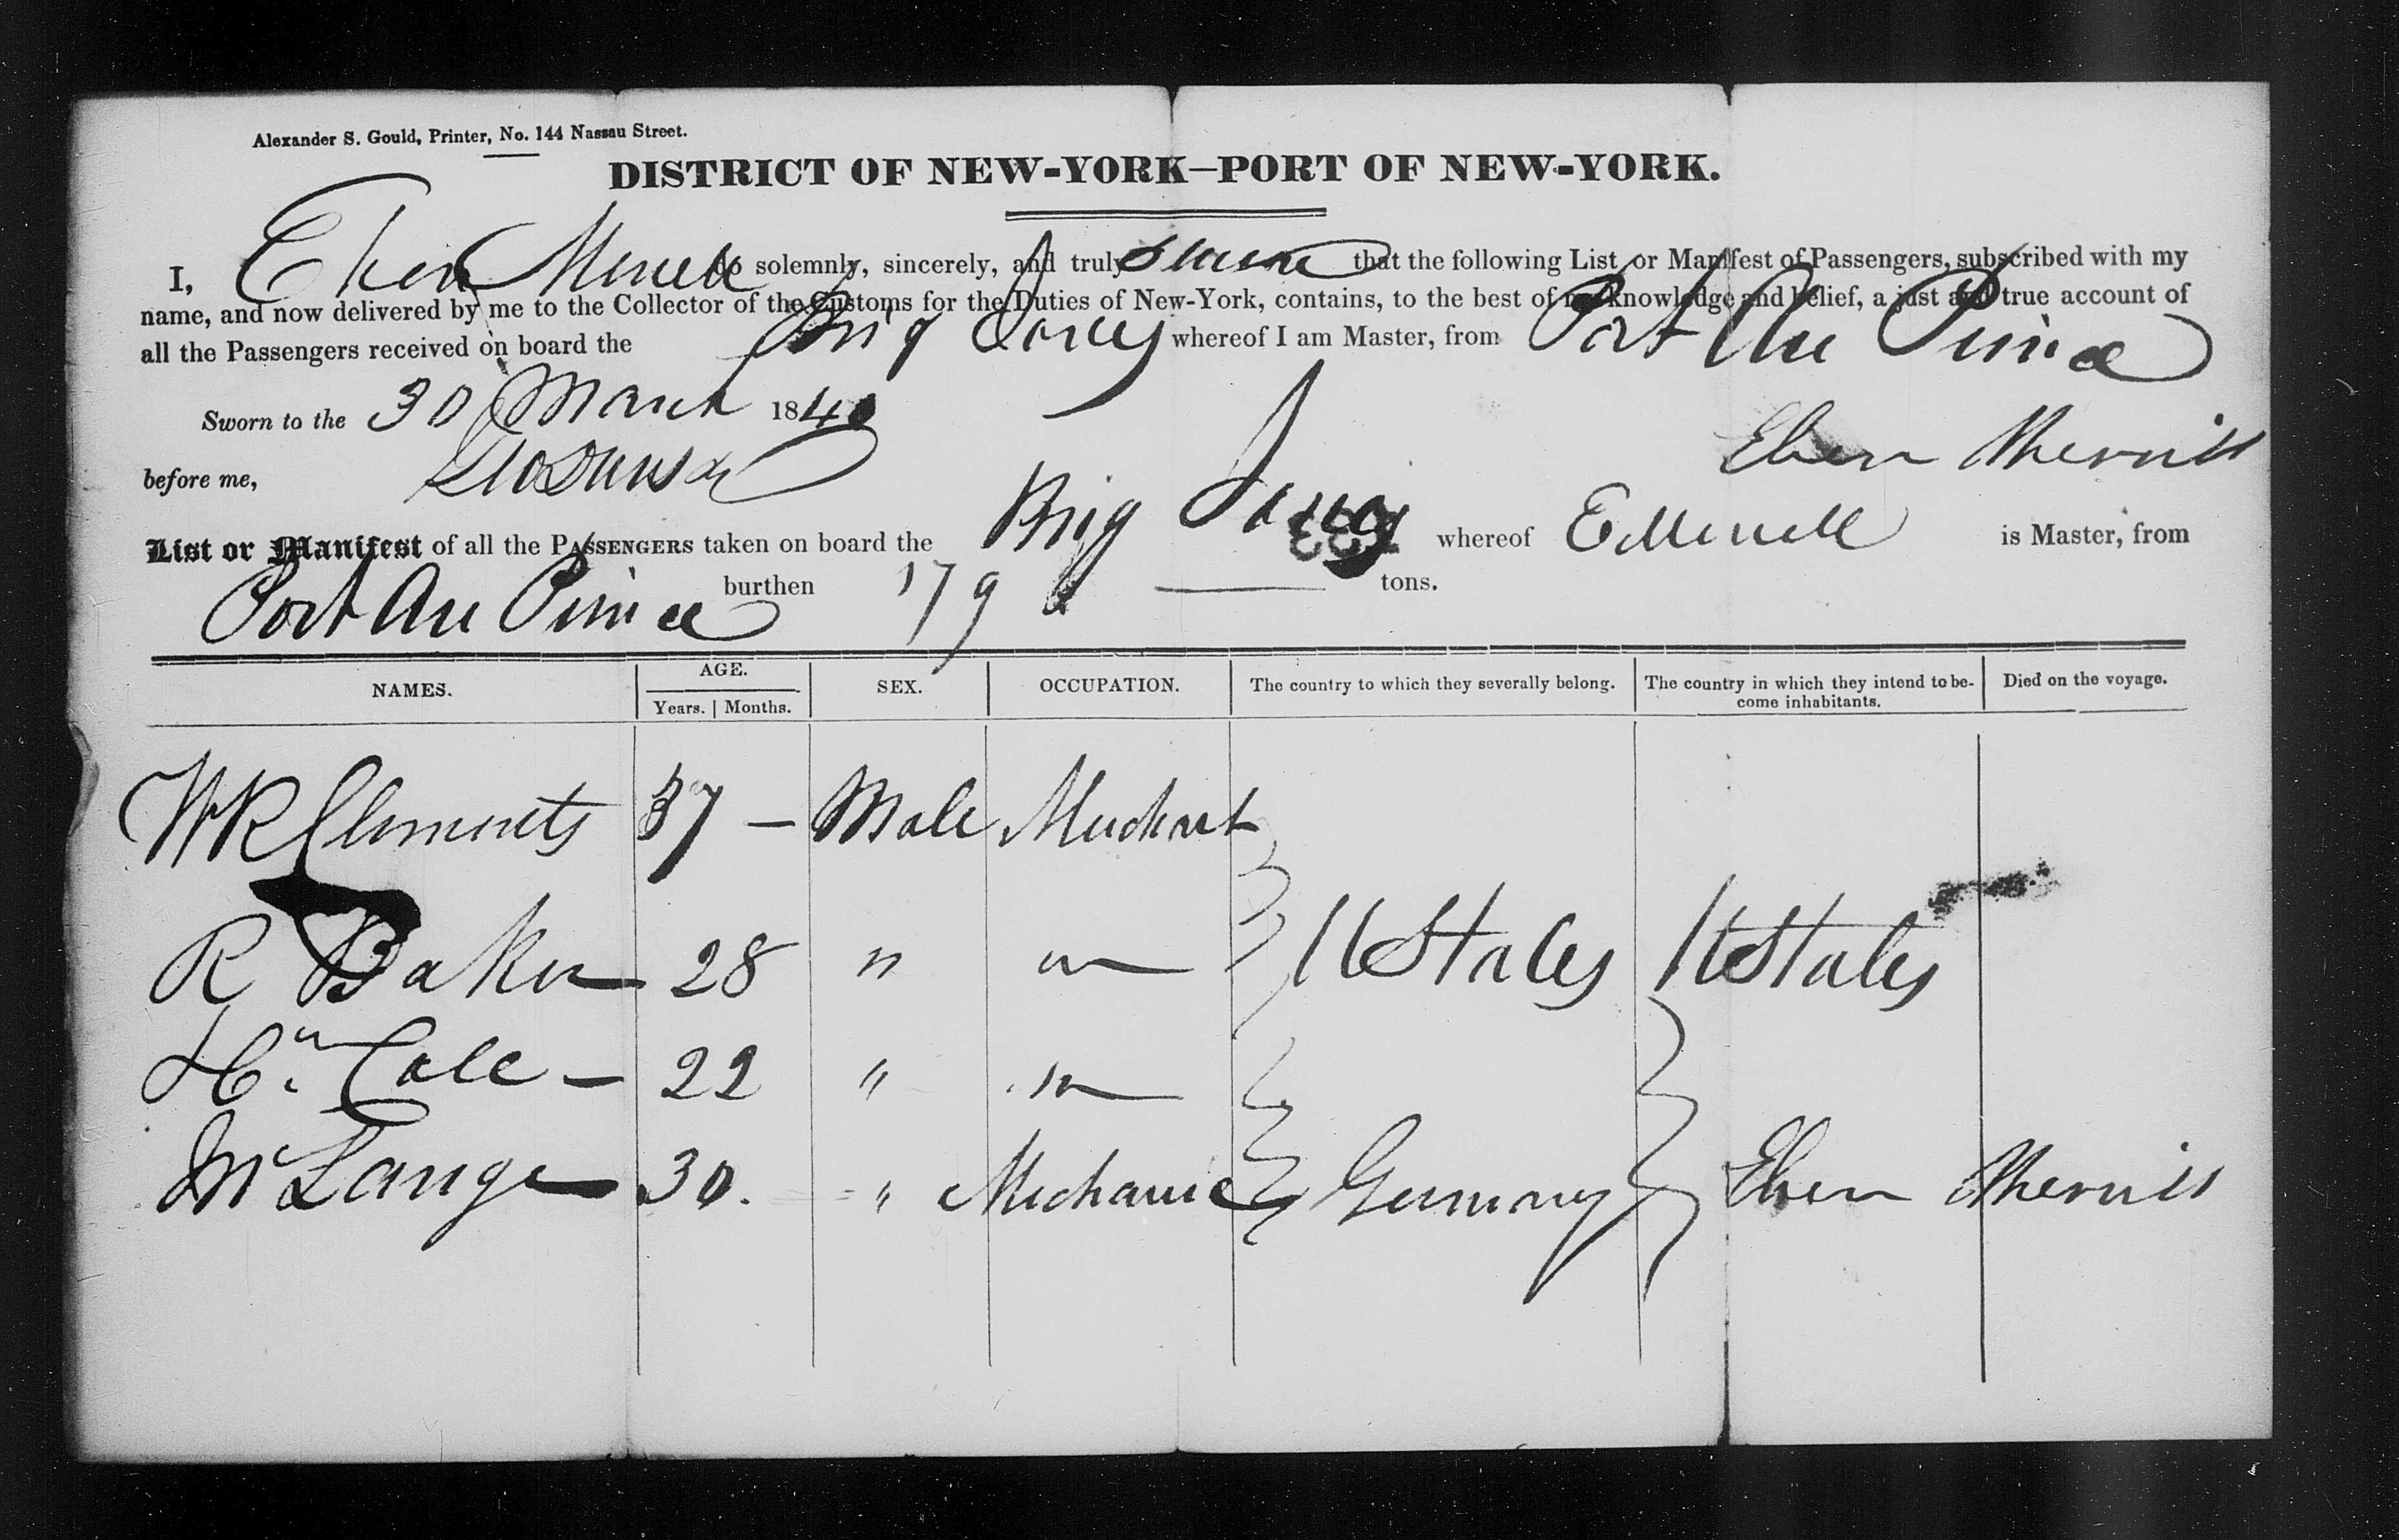 Alexander S. Gould, Printer, No. 144 Nassau Street.
DISTRICT OF NEW-YORK—PORT OF NEW-YORK.
I, Eben Merrill do solemnly, sincerely, and truly swear that the following List or Manifest of Passengers, subscribed with my
name, and now delivered by me to the Collector of the Customs for the Duties of New-York, contains, to the best of my knowledge and belief, a just and true account of
all the Passengers received on board the Brig whereof I am Master, from Port Au Prince
Sworn to the 30 March 1840
before me, Eben Merrill
List or Manifest of all the PASSENGERS taken on board the Brig whereof E Merrill is Master, from
Port Au Prince burthen 179 tons.
NAMES. AGE. SEX. OCCUPATION. The country to which they severally belong. The country in which they intend to be- Died on the voyage.
Years. | Months. come inhabitants.
W R Clements 37 — Male Merchant
R Baker 28 " " U States U States
Hn. Cole — 22 " "
M Lange 30. " Mechanic Germany Eben Merrill